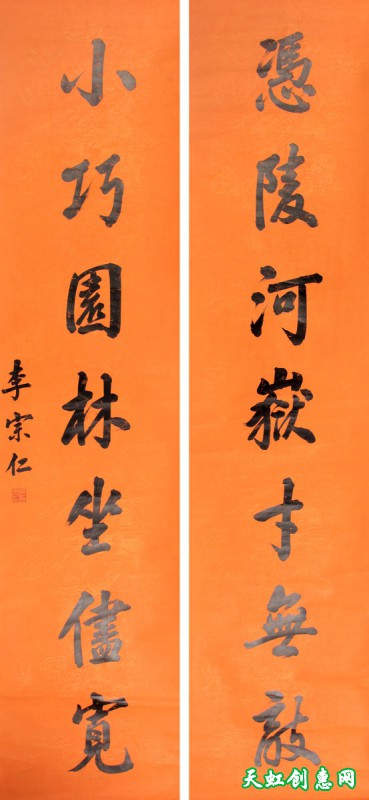 憑陵河嶽才無敵
小巧園林坐儘寬
李宗仁
天虹创惠网